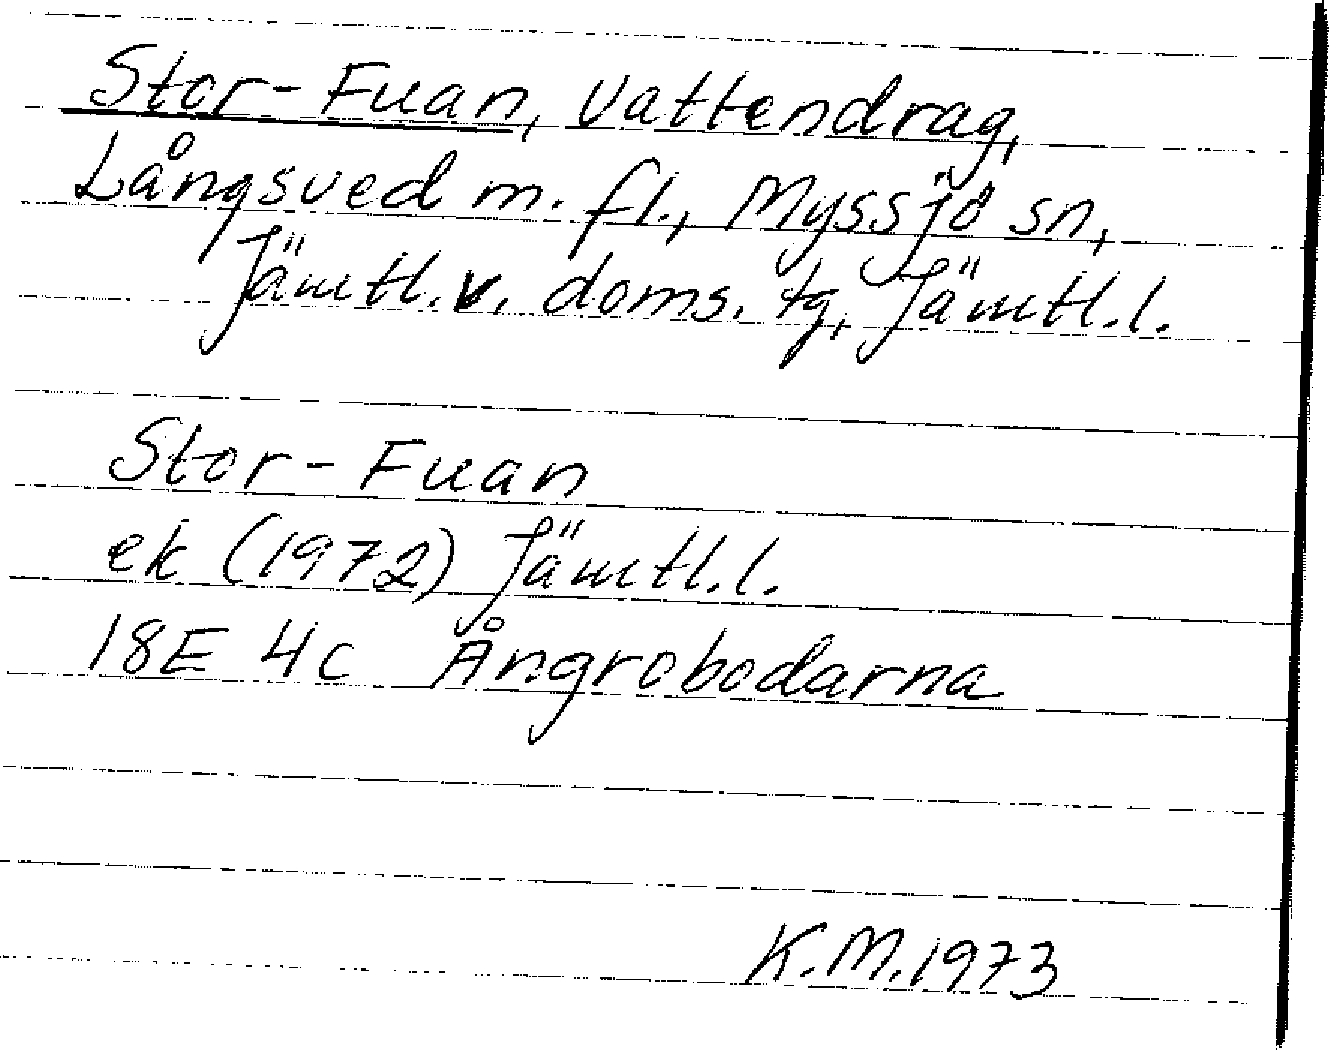 Stor-Fuan, vattendrag,
Långsved m. fl., Myssjö sn,
Jämtl. v. doms. tg, Jämtl. l.
Stor-Fuan
ek (1972) Jämtl. l.
18E 4c Ångrobodarna
K.M. 1973